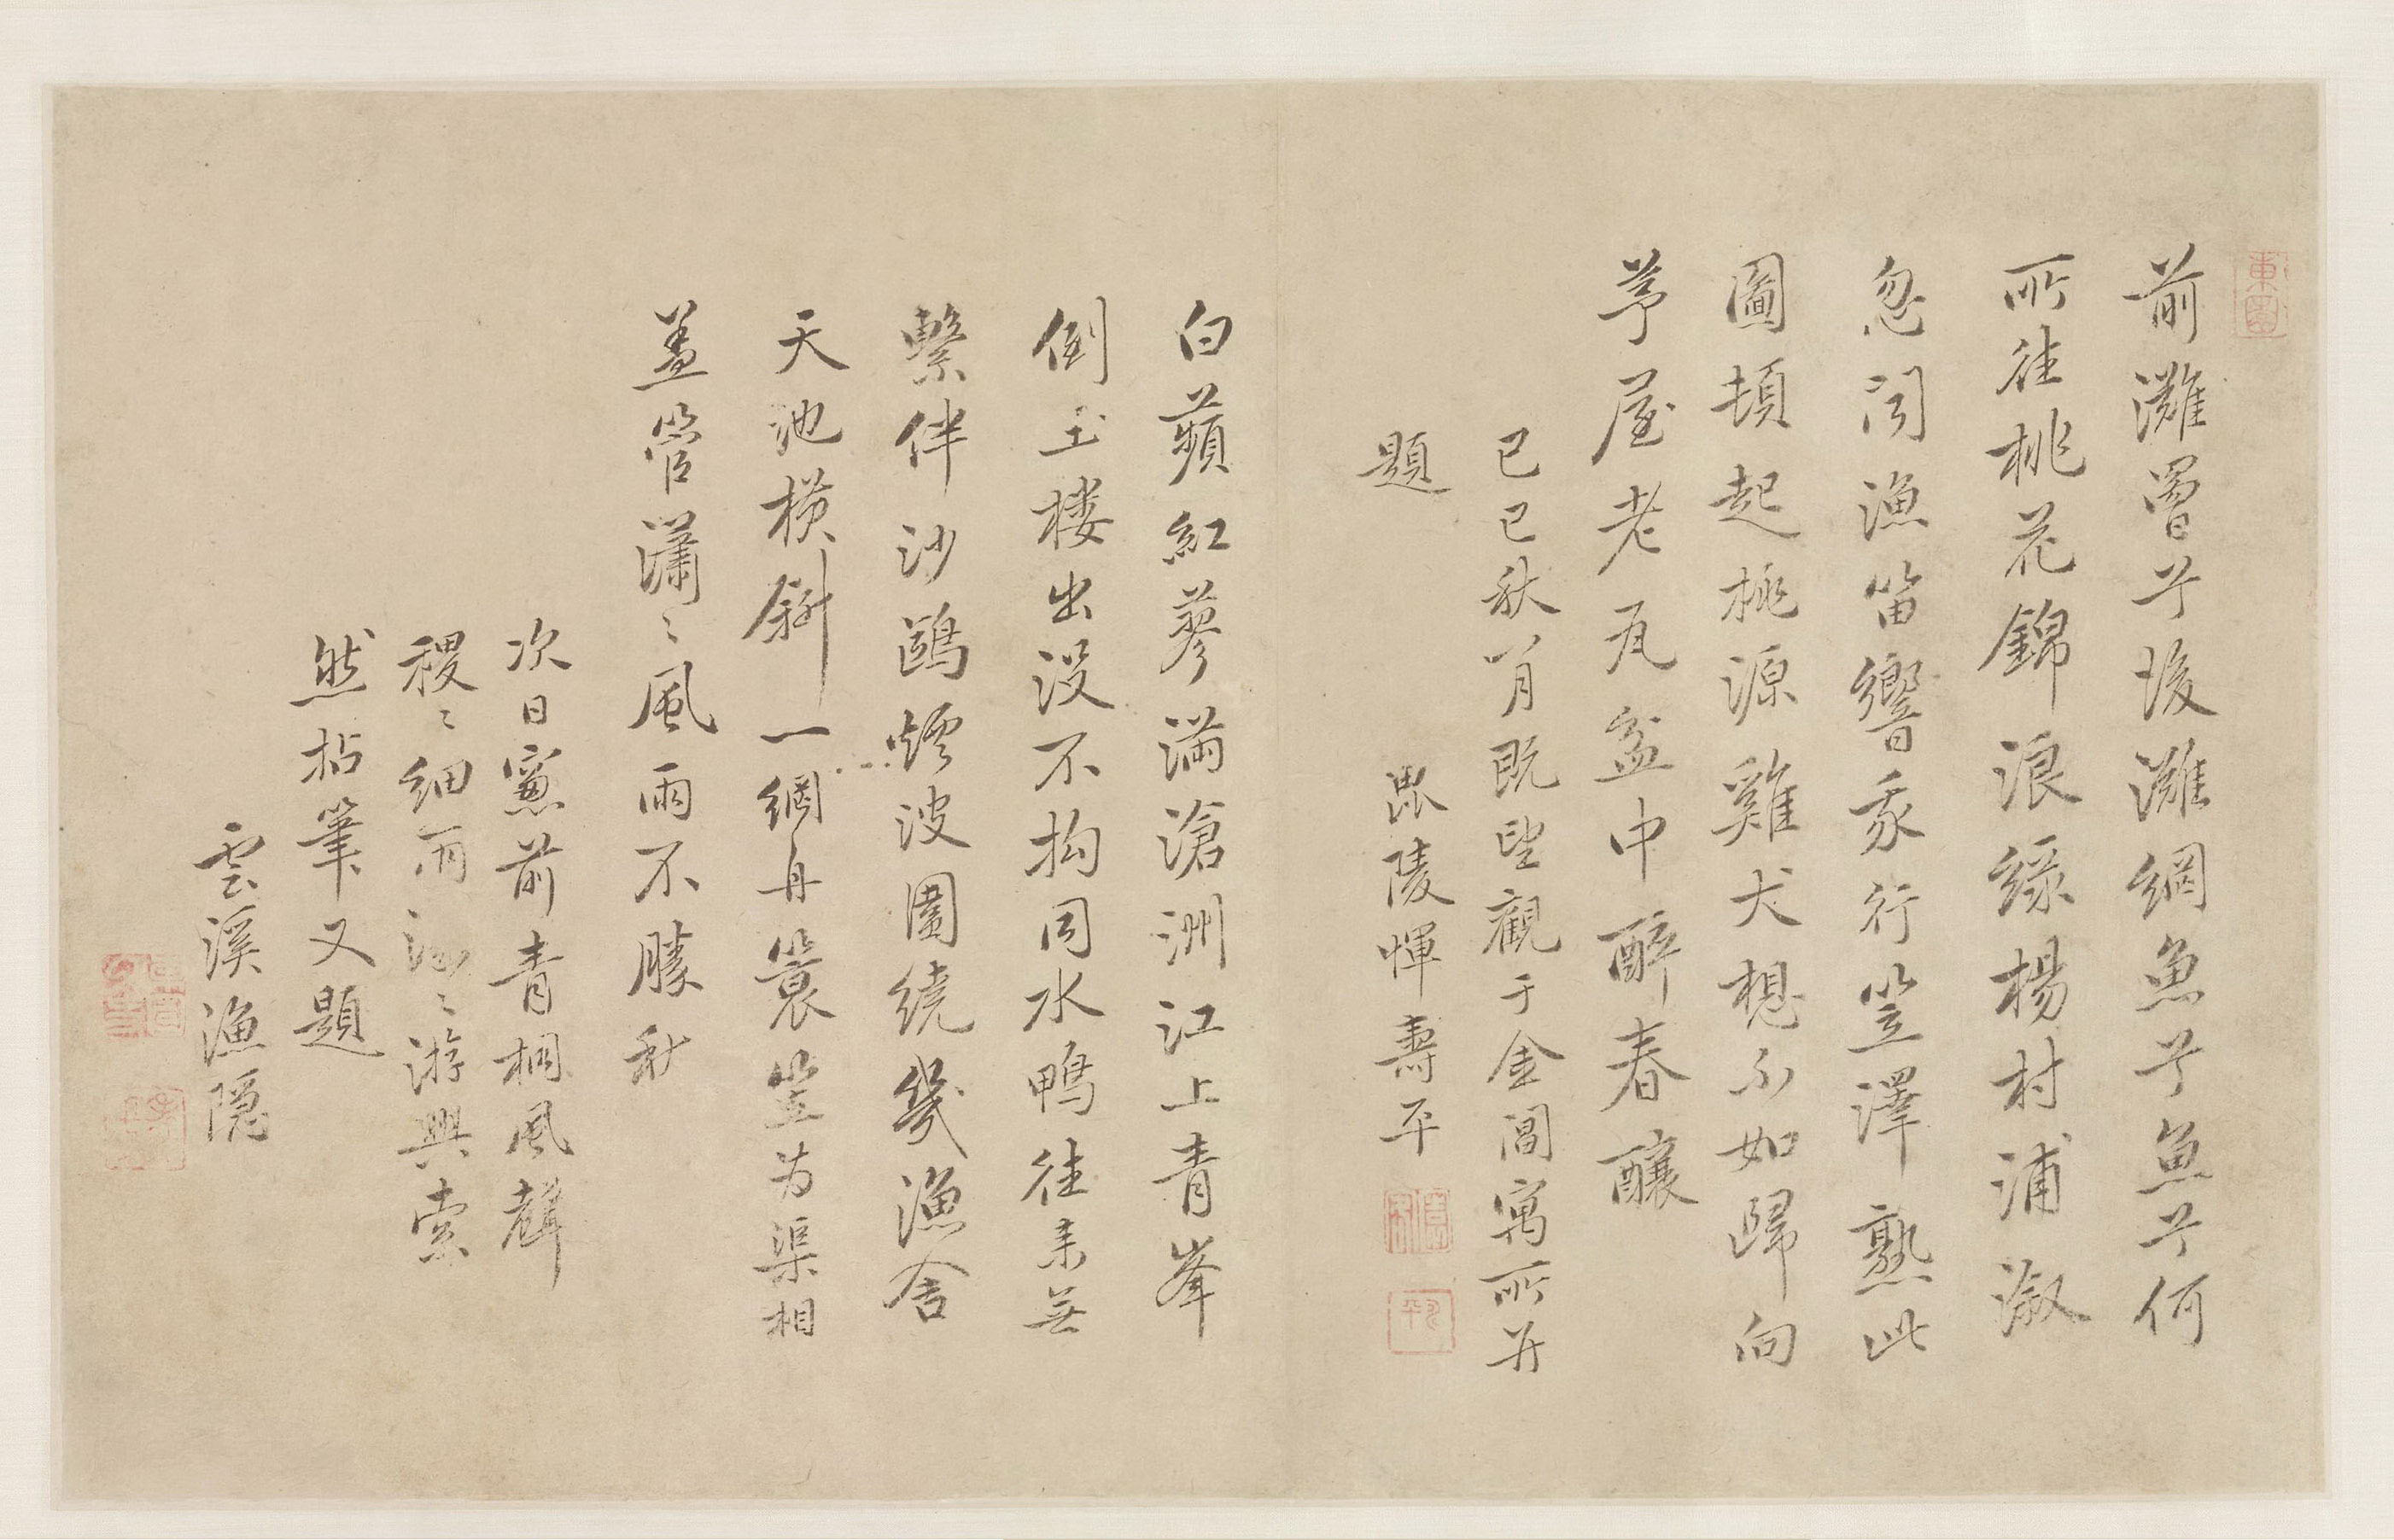 東園
前灘罾兮後灘網魚兮魚兮何
所往桃花錦浪綠楊村浦漵
忽聞漁笛響我行笠澤熟此
圖頓起桃源雞犬想不如歸向
茅屋老瓦盆中醉春釀
己巳秋八月既望觀于金閶寓所并
題
毘陵惲壽平
白蘋紅蓼滿滄洲江上青峯
倒玉樓出没不拘同水鴨往来無
繫伴沙鷗煙波圍繞幾漁舍
天池橫斜一網舟蓑笠为渠相
蓋管瀟〻風雨不勝秋
次日窻前青桐風聲
稷〻細雨游興索
然拈筆又題
雲溪漁隱